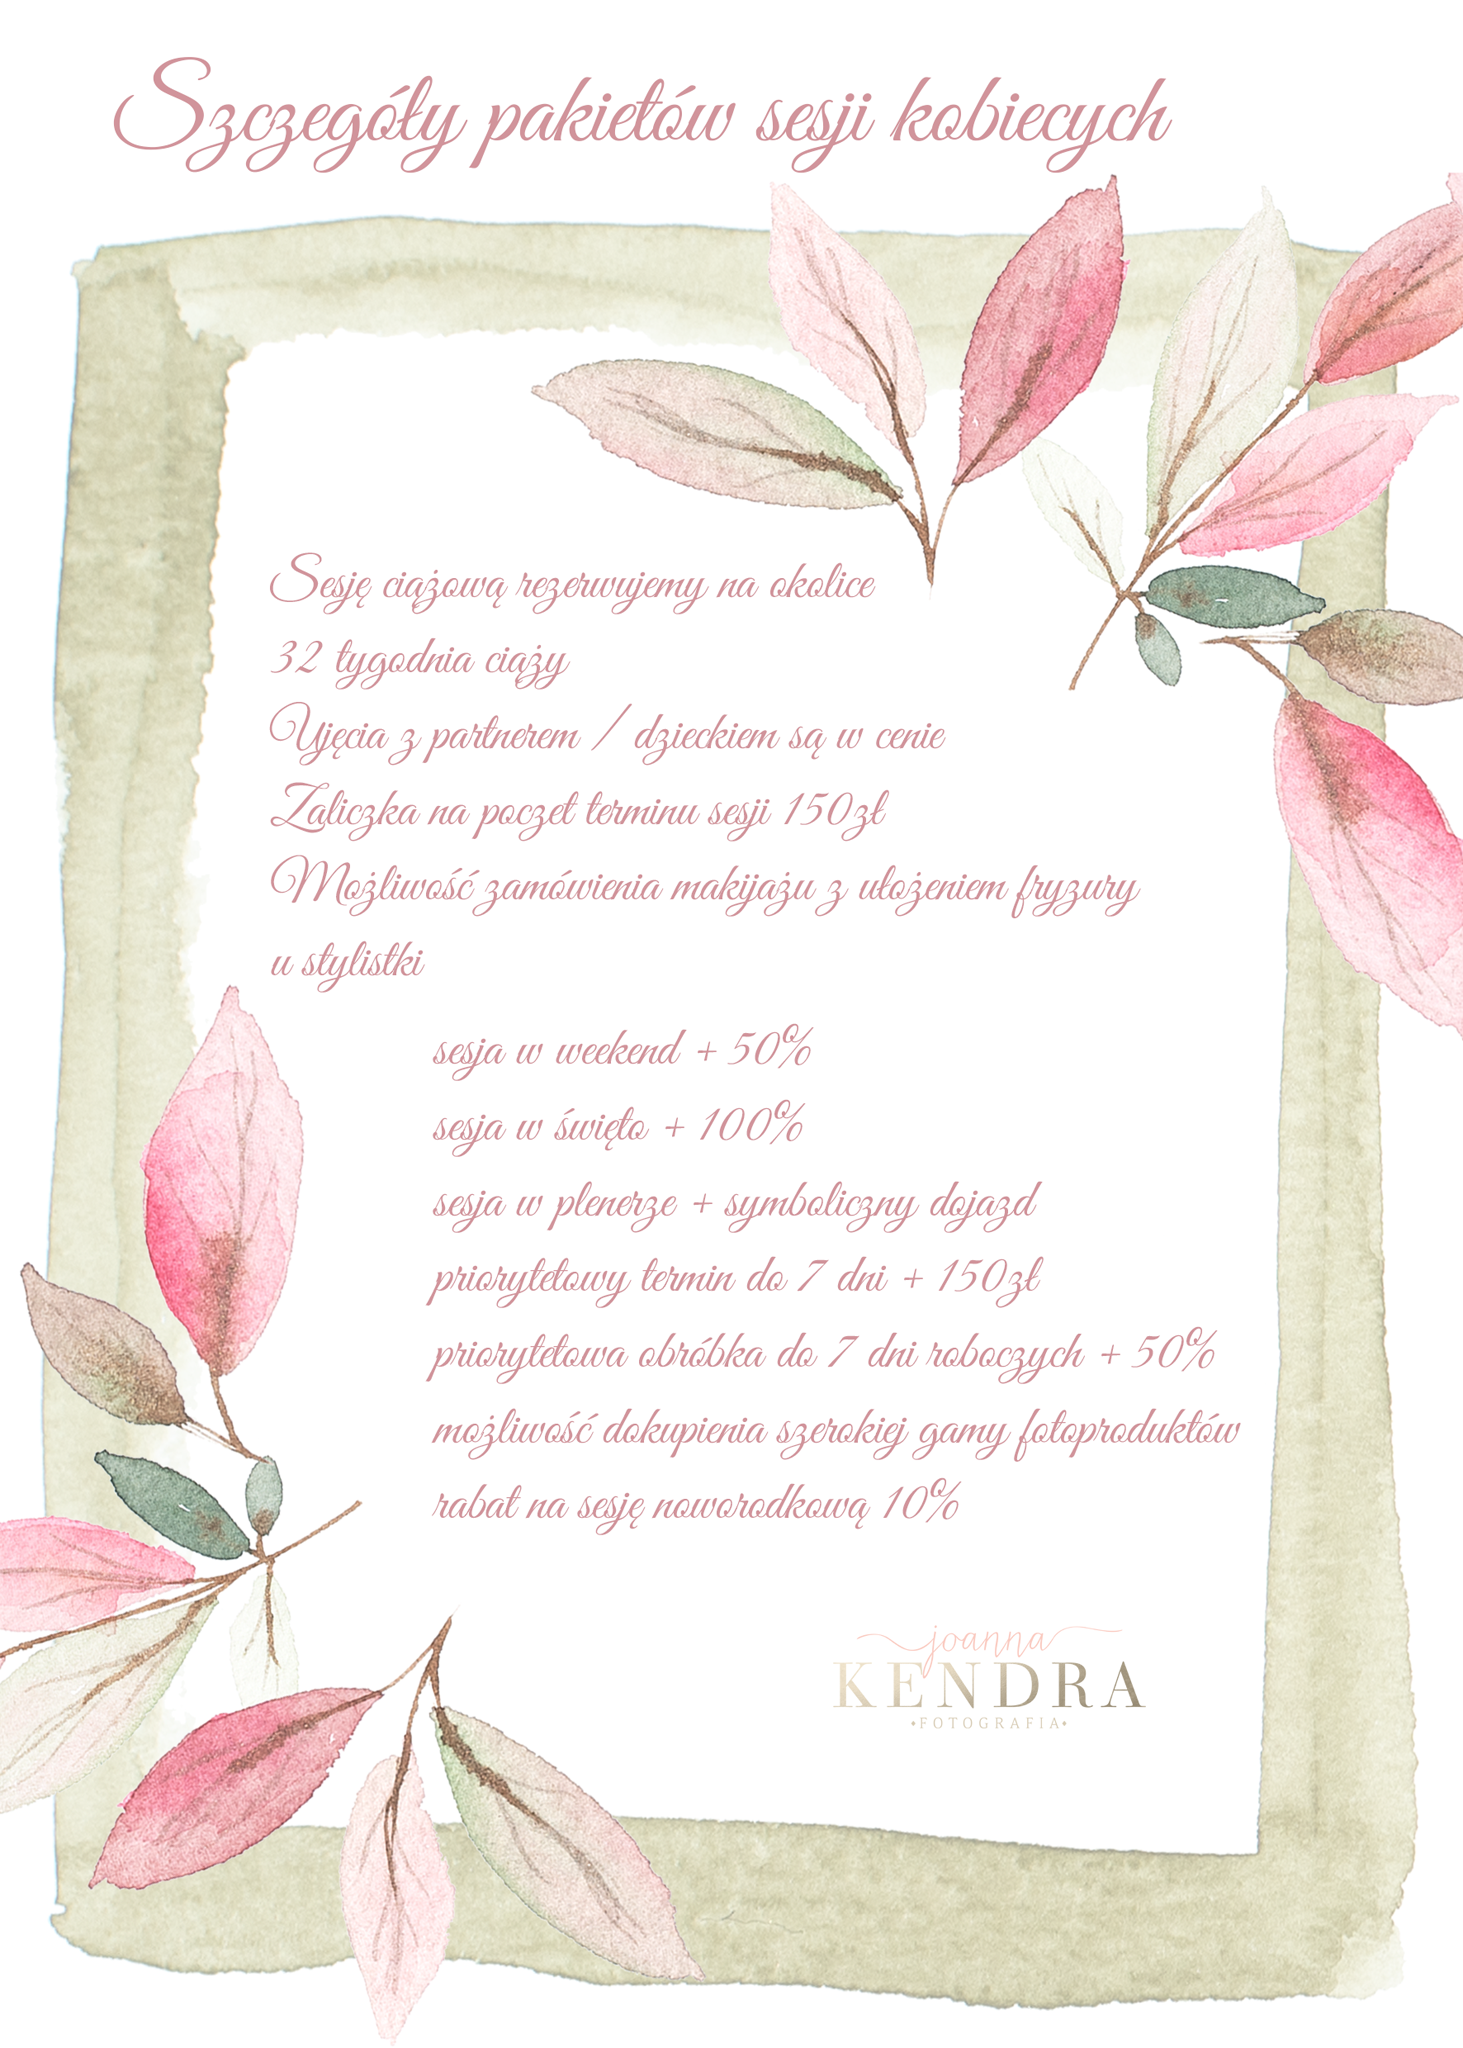 Szczegóły pakietów sesji kobiecych
Sesję ciążową rezerwujemy na okolice
32 tygodnia ciąży
Ujęcia z partnerem / dzieckiem są w cenie
Zaliczka na poczet terminu sesji 150zł
Możliwość zamówienia makijażu z ułożeniem fryzury
u stylistki
sesja w weekend + 50%
sesja w święto + 100%
sesja w plenerze + symboliczny dojazd
priorytetowy termin do 7 dni + 150zł
priorytetowa obróbka do 7 dni roboczych + 50%
możliwość dokupienia szerokiej gamy fotoproduktów
rabat na sesję noworodkową 10%
joanna
KENDRA
•FOTOGRAFIA•